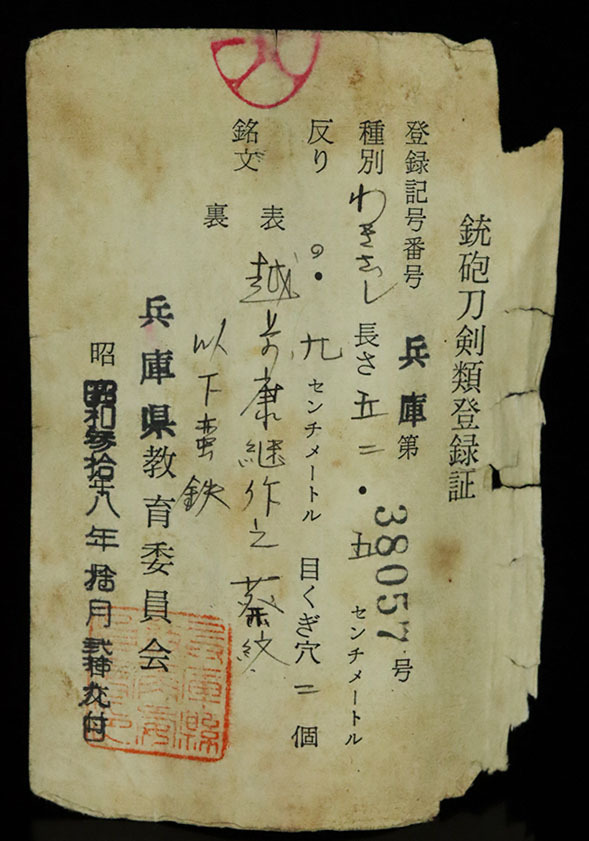 銃砲刀剣類登録証
登録記号番号 兵庫第 38057 号
種別 わきざし 長さ 五二・五 センチメートル
反り 〇・九 センチメートル 目くぎ穴 二 個
銘文 表 越前康継作之 葵紋
裏 以下蛮鉄
兵庫県教育委員会
昭 昭和参拾年八年 拾月 交付